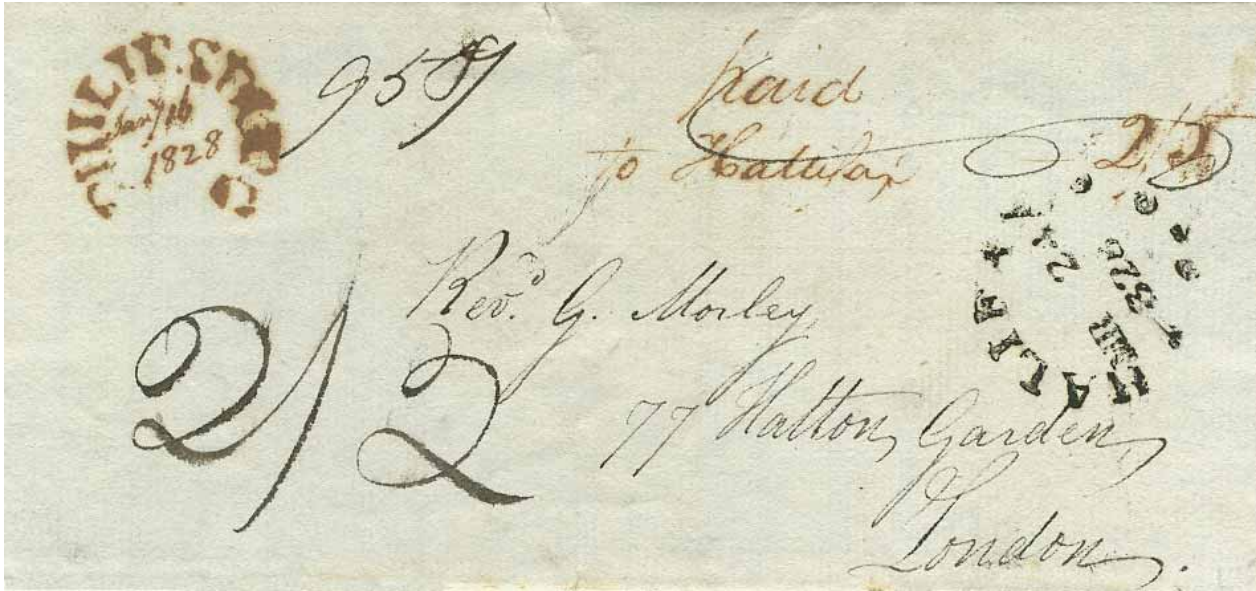 PHILIPSBURG
Jany 16
1828
paid
to Hallifax
2/2
HALIFAX
MR
24
1828
2/2
Revd. G. Morley
77 Hatton Garden
London.